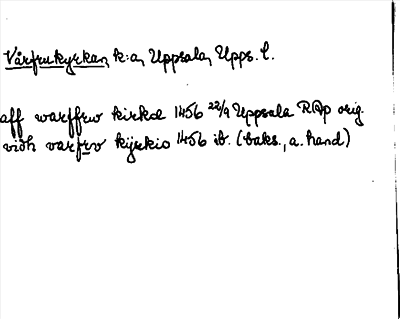 Vårfrukyrkan, k:a, Uppsala, Upps. l.
aff warffrw kirkol 1456 22/9 Uppsala RAp orig.
vidh varfrv kyrkio 1456 ib. (baks., a. hand)